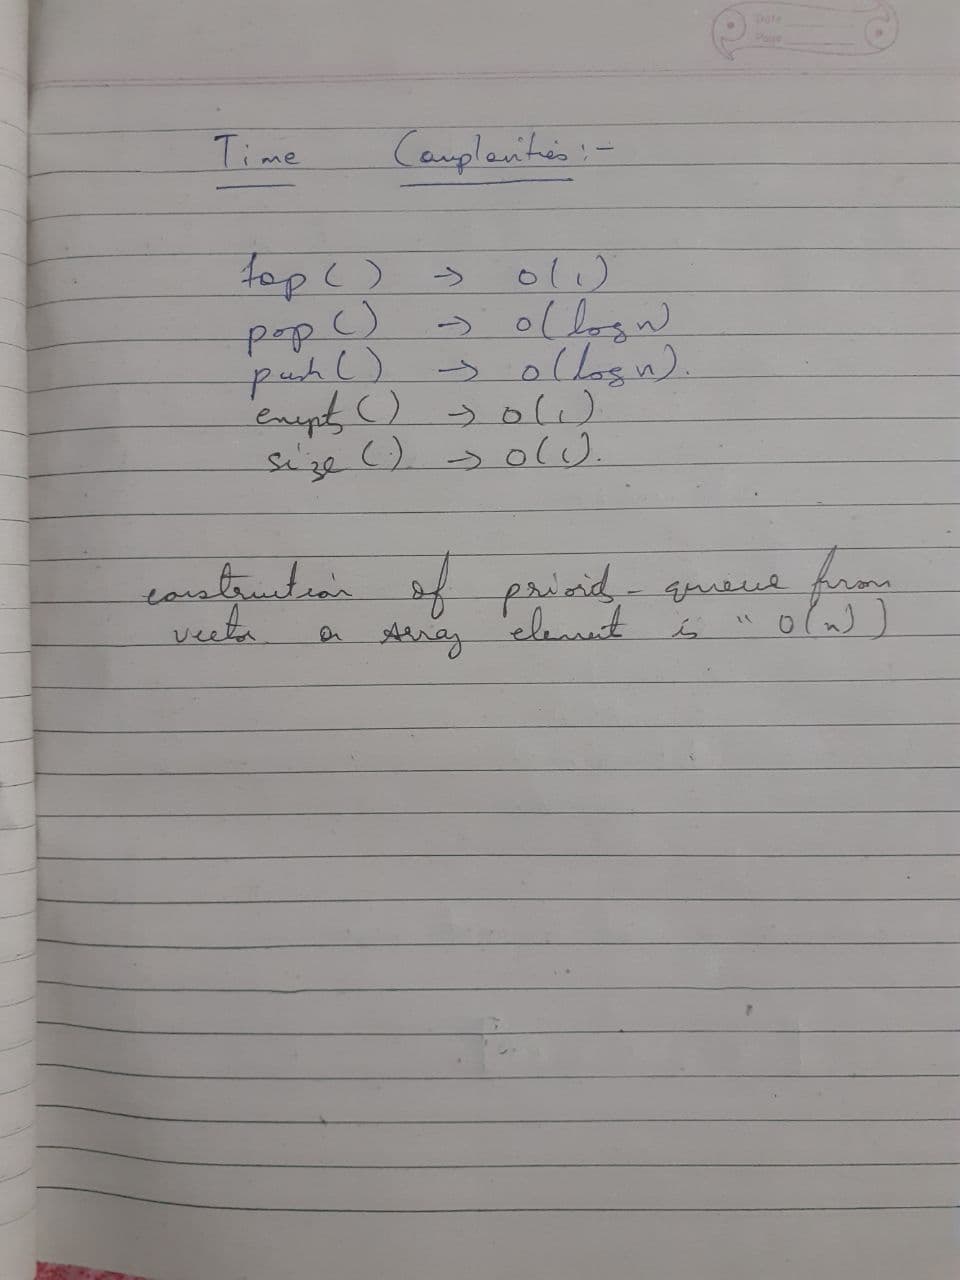 Date
Page
Time Complexities:-
top() → O(1)
pop() → O(log n)
push() → O(log n).
empty() → O(1)
size() → O(1).
construction of priority-queue from
vector or Array element is " O(n) )